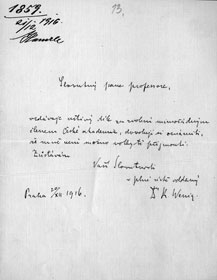 1859.
21/12 1916.
13.
Slovutný pane professore,
vzdávaje uctivý dík za zvolení mimořádným
členem České akademie, dovoluji si oznámiti,
že mně není možno volby té přijmouti.
Zůstávám
Vaší Slovutnosti
v plné úctě oddaný
Dr K. Wenig.
Praha 20/XII 1916.